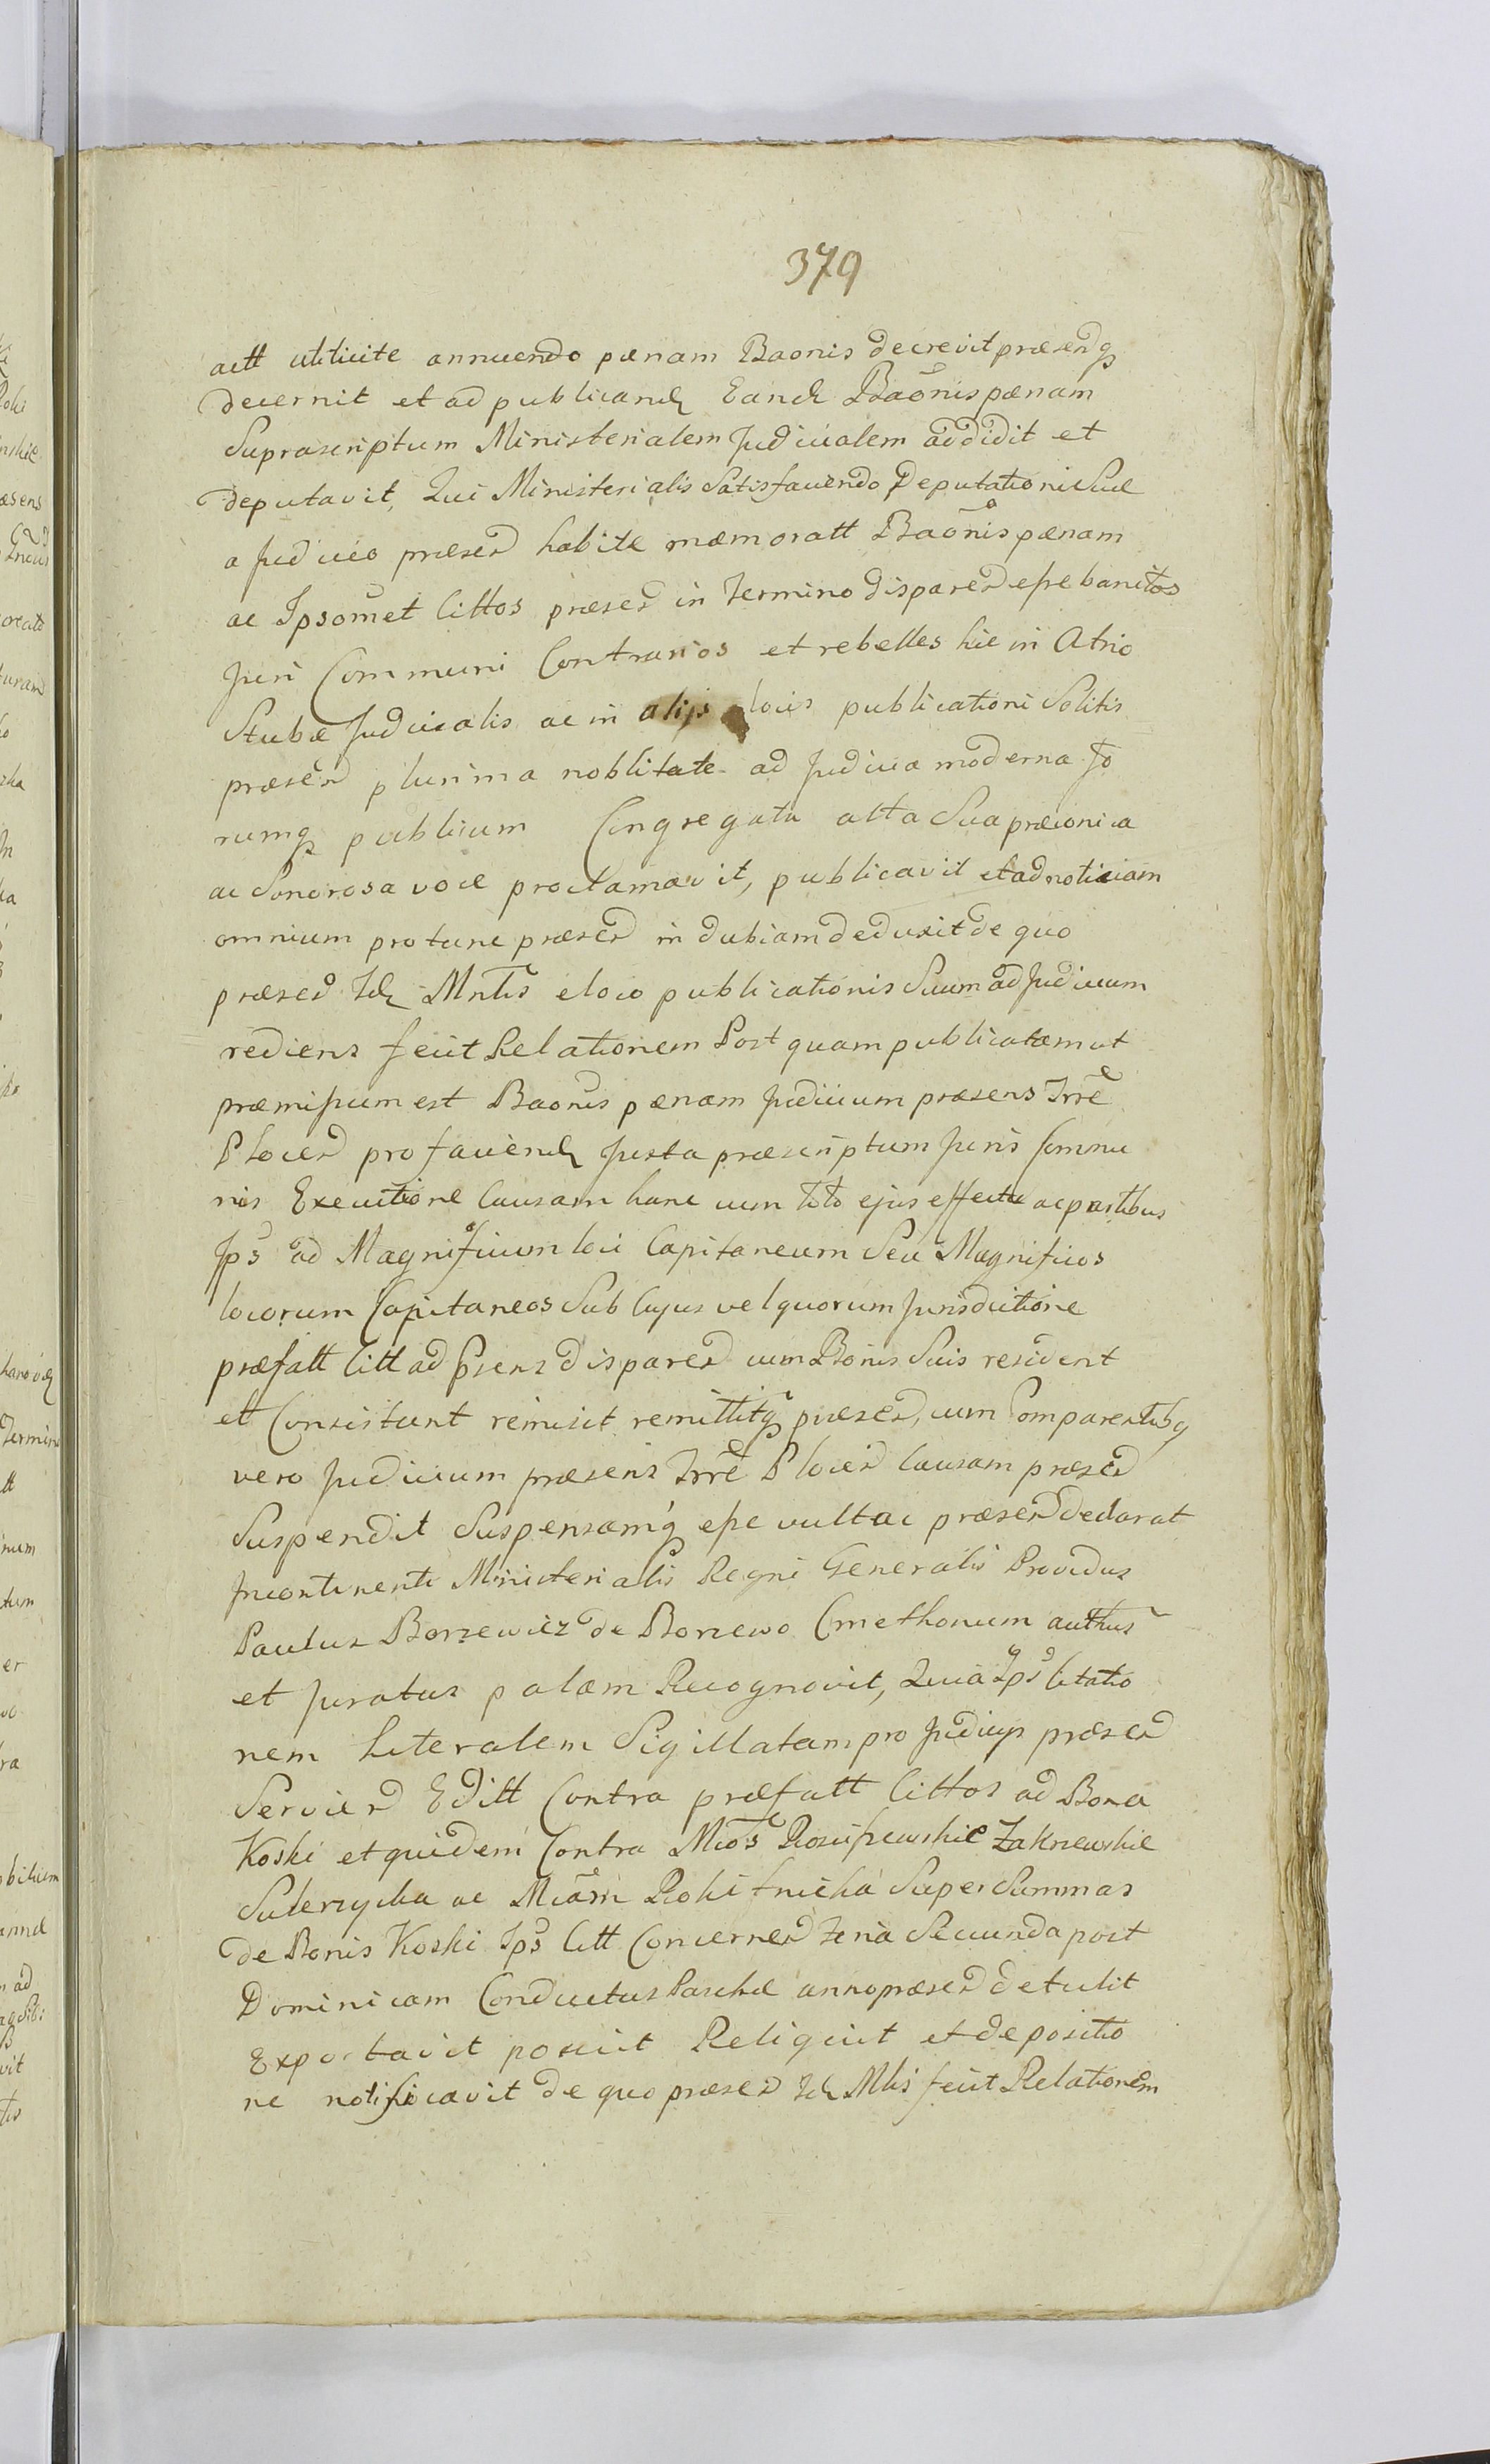 379
actt utiticite annuendo pænam Baonis decrevit præsenq
decernit et ad publicand Eand Baonis pænam
Suprascriptum Ministerialem Judicialem addidit et
deputavit, Qui Ministerialis Satisfaciendo Deputationi Suæ
a Judicio præsen habitæ mæmoratt Baonis pænam
ac Ipsomet Cittos præsen in Termino disparen esse banitos
Juri Communi Contrarios et rebelles hic in Atrio
Stubæ Judicialis ac in alijs locis publicationi Solitis
præsen plurima noblitate ad Judicia moderna Fo
rumq publicum Congregata alta Sua præconica
ac Sonorosa voce proclamavit, publicavit et ad noticiam
omnium pro tunc præsen in dubiam deduxit de quo
præsen Id Mnlis e loco publicationis Suum ad Judicium
rediens fecit Relationem Post quam publicatam ut
præmissum est Baonis pænam Judicium præsens Trre
Plocen pro faciend Juxta præscriptum Juris Commu
nis Executione Causam hanc cum toto ejus effectu ac partibus
Ips ad Magnificum loci Capitaneum Seu Magnificos
locorum Capitaneos Sub Cujus vel quorum Jurisdictione
præfatt Citt ad psens disparen cum Bonis Suis resident
et Consistunt remisit remittitq præsen, cum Comparentibq
vero Judicium præsens Trre Plocen Causam præsen
Suspendit Suspensamq esse vult ac præsen declarat
Incontinenti Ministerialis Regni Generalis Providus
Paulus Borzewicz de Borzewo Cmethonum authus
et Juratus palam Recognovit, Quia Ips Citatio
nem literalem Sigillatam pro Judicijs præsen
Servien Editt Contra præfatt Cittos ad Bona
Koski et quidem Contra Mcos Zakrzewskie
ac Mcam Super Summas
de Bonis Koski Ips Citt Concernen Feria Secunda post
Dominicam Conductus Paschæ anno præsen detulit
Exportavit posuit Reliquit et depositio
ne notificavit de quo præsen Id Mlis fecit Relationem